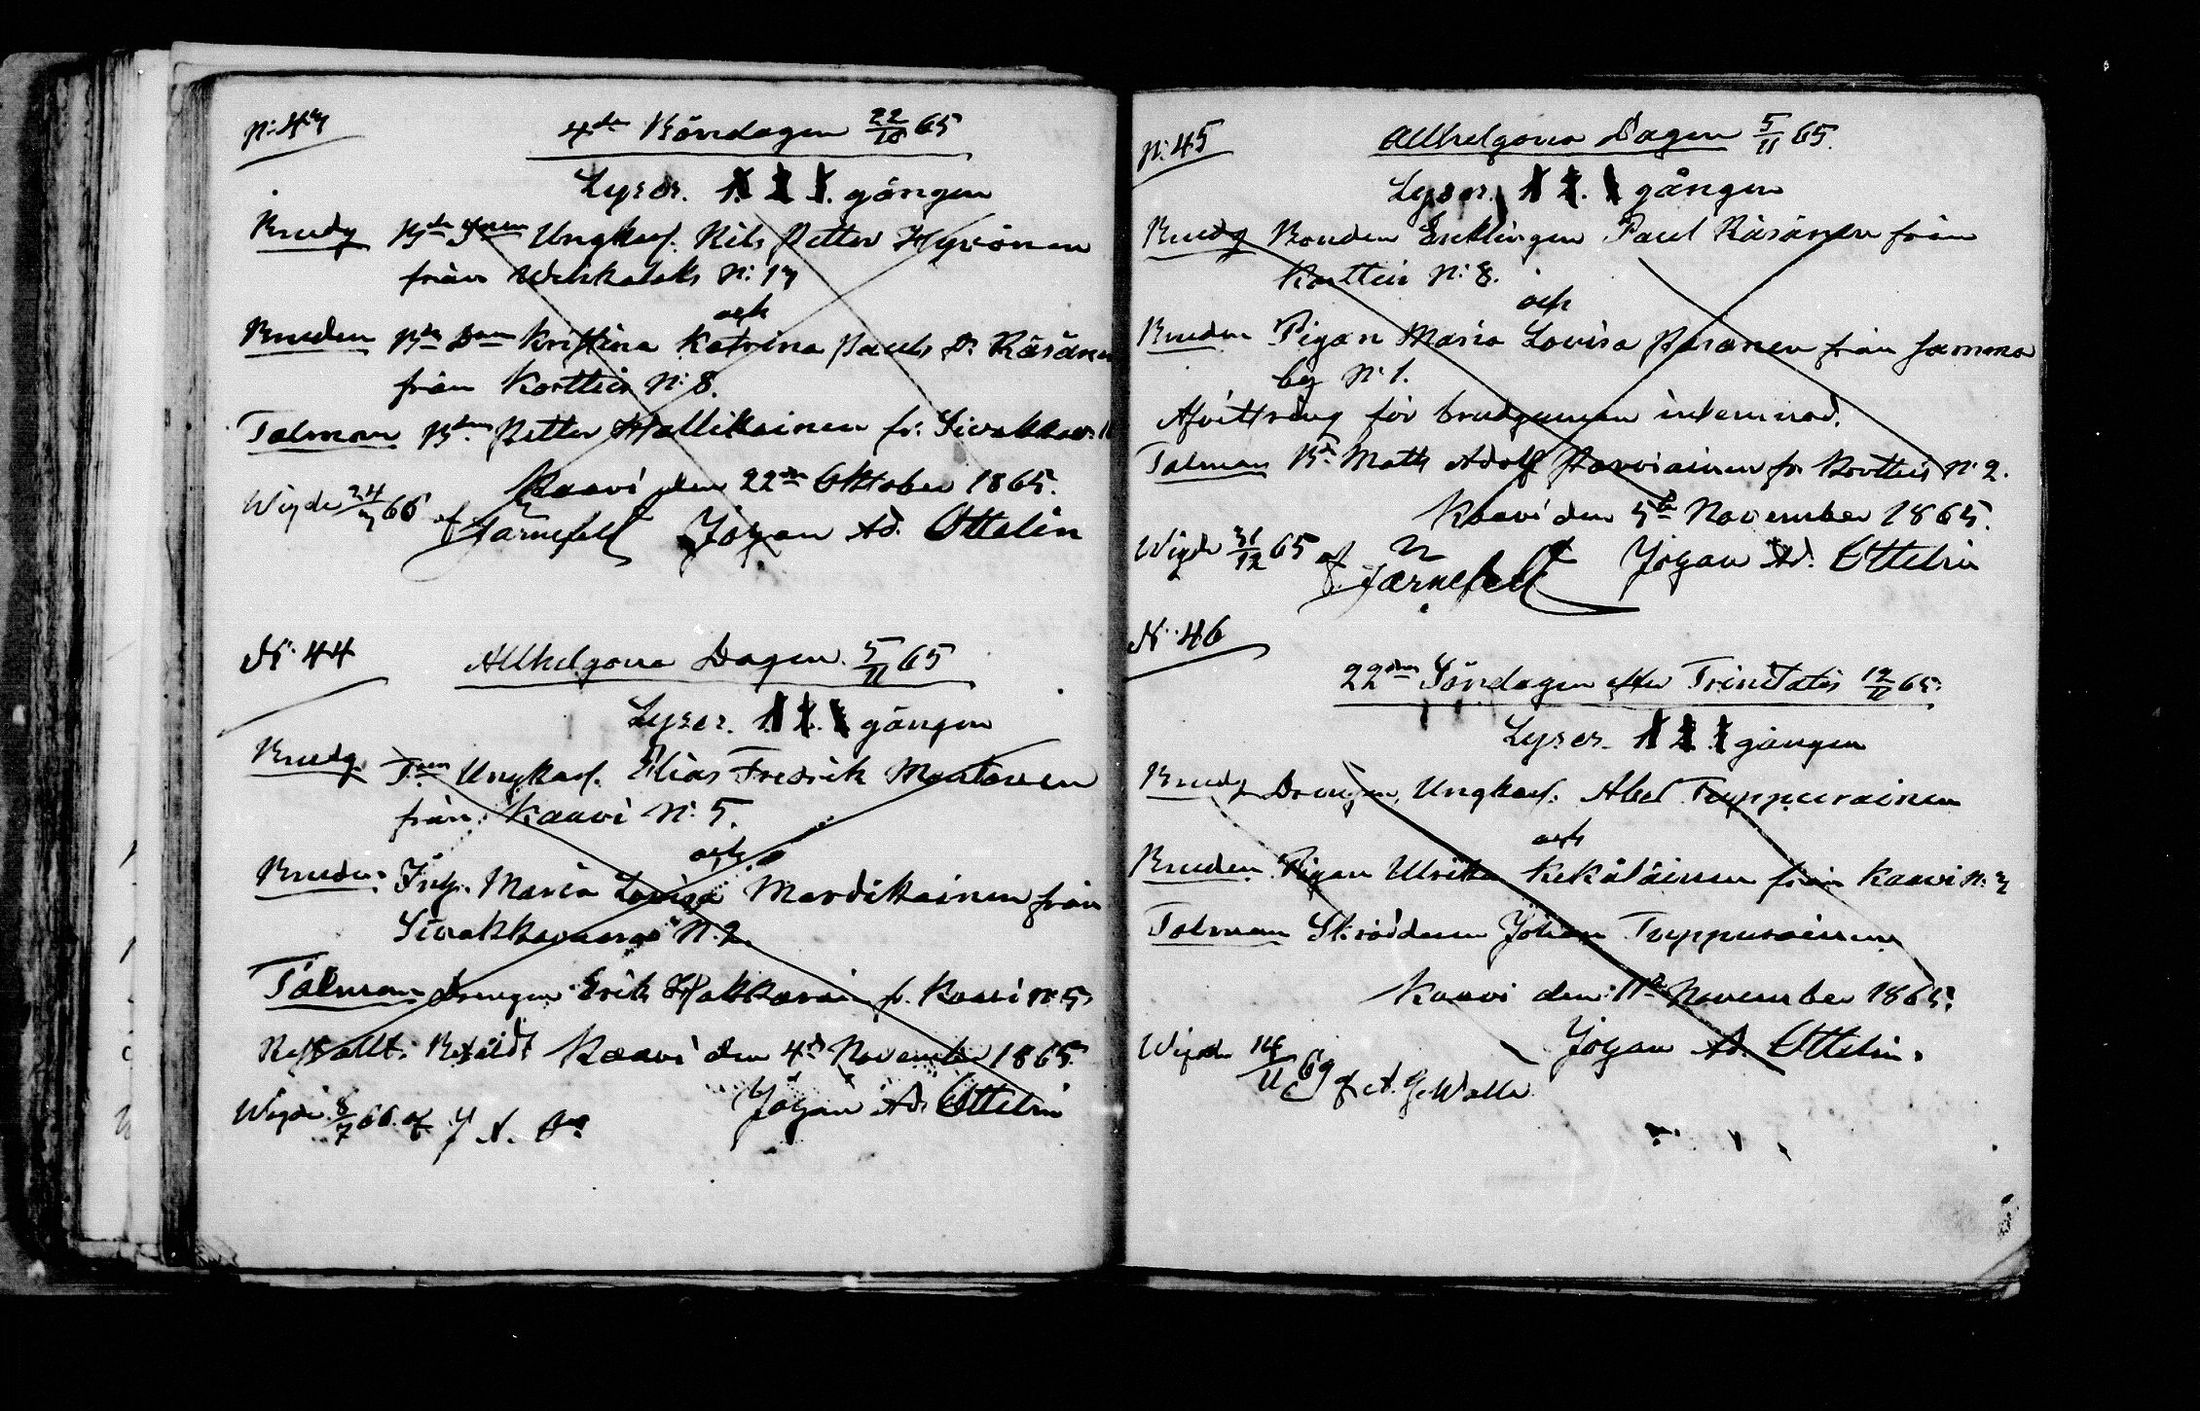 N: 43
4de Böndagen 22/10 65
Lyses. 1. 2. 3. gången
Brudg Bde Sonen Ungkarl. Nils Petter Hyvönen
från Wehkalaks N: 13
och
Bruden Bde Dom Kristina Katrina Pauls D. Räsänen
från Korttein N: 8.
Talman Bden Petter Hallikainen fr. Sivakkav.
Kaavi den 22de Oktober 1865.
Wigde 24/3 66 af Järnefelt Johan Ad. Ottelin
N: 44
Allhelgona Dagen. 5/11 65
Lyses. 1. 2. 3 gången
Brudg. Ungkarl. Elias Fredrik
från Kaavi N: 5.
och
Bruden Inh. Maria Lovisa Mardikainen från
Sivakkavaara N. 2.
Talman Drengen Erik Hakkarain fr. Kaavi N: 5
Kaavi den 4de November 1865.
Wigde 8/7 66. af J A. Johan Ad. Ottelin
N: 45
Allhelgona Dagen 5/11 65.
Lyses. 1 2. 3 gången
Brudg Bonden Enklingen Paul Räsänen från
Korttein N: 8.
och
Bruden Pigan Maria Lovisa Pasanen från Jamma
by N: 1.
Afvittring för brudgummen inlemnad.
Talman Bd. Matts Adolf Parviainen fr. Korttein N: 2.
Kaavi den 5te November 1865.
Wigde 31/12 65 af N Järnefelt Johan Ad. Ottelin
N: 46
22dra Söndagen efter Trinitatis 12/11 65.
Lyses. 1 2 3 gången
Brudg Drengen, Ungkarl. Abel Tuppurainen
och
Bruden Pigan Ulrika Kekäläinen från Kaavi N: 3
Talman Skräddaren Johan Tuppurainen
Kaavi den 11te November 1865.
Johan Ad. Ottelin.
Wigde 14/11 69 af A. G. Walle